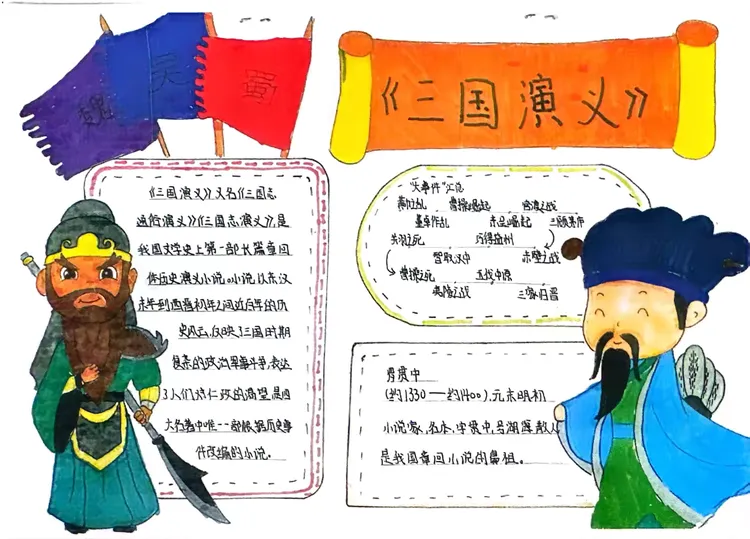 魏
吴
蜀
《三国演义》
《三国演义》又名《三国志
通俗演义》《三国志演义》,是
我国文学史上第一部长篇章回
体历史演义小说。小说以东汉
末年到西晋初年之间近百年的历
史风云,反映了三国时期
复杂的政治军事斗争,表达
了人们对仁政的渴望,是四
大名著中唯一一部根据历史事
件改编的小说。
"大事件"汇总
黄巾之乱 曹操崛起 官渡之战
董卓作乱 东吴崛起 三顾茅庐
关羽之死 巧得益州
智取汉中 赤壁之战
曹操之死 五伐中原
夷陵之战 三家归晋
罗贯中
(约1330——约1400),元末明初
小说家,名本,字贯中,号湖海散人
是我国章回小说的鼻祖。